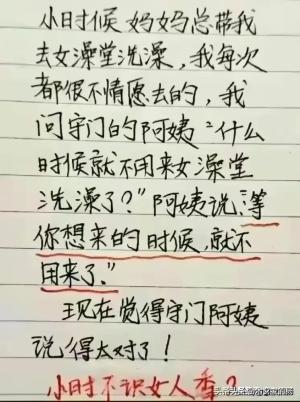 小时候妈妈总带我
去女澡堂洗澡，我每次
都很不情愿去的，我
问守门的阿姨："什么
时候就不用来女澡堂
洗澡了？"阿姨说："等
你想来的时候，就不
用来了。"
现在觉得守门阿姨
说得太对了！
小时不识女人香？